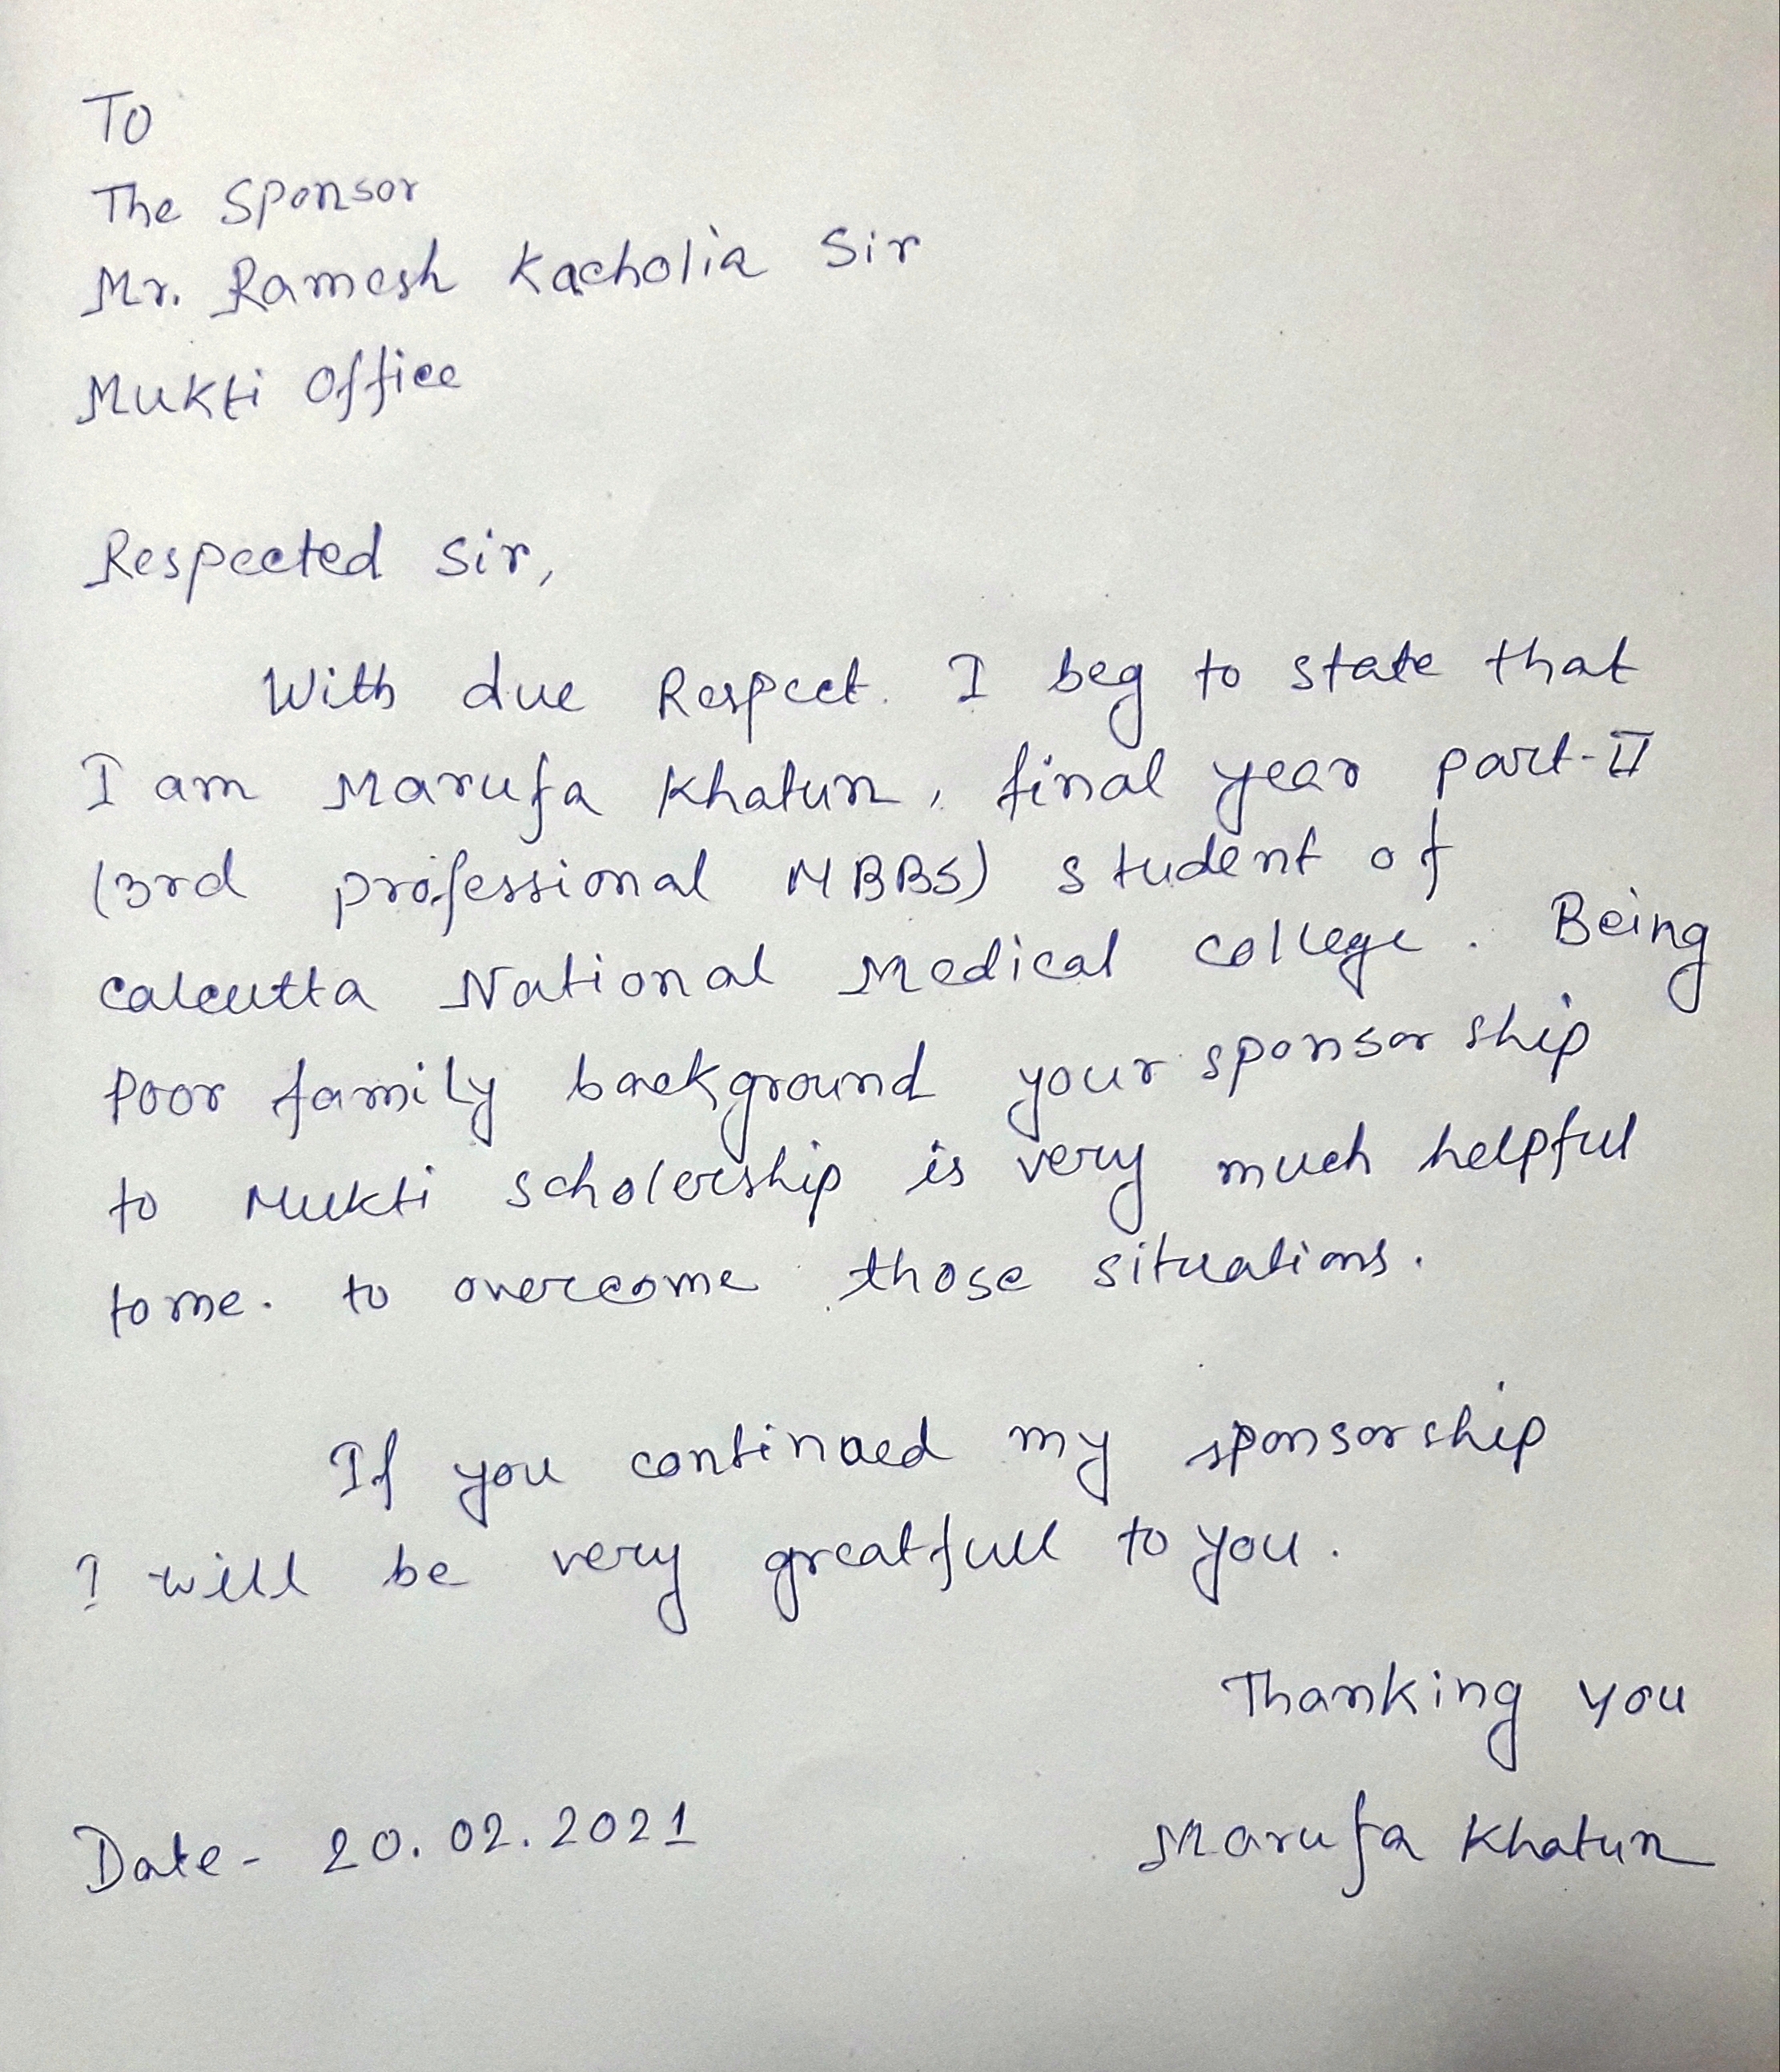 To
The Sponsor
Mr. Ramesh Kacholia Sir
Mukti Office
Respected Sir,
With due Respect. I beg to state that
I am Marufa Khatun, final year part-II
(3rd professional MBBS) student of
Calcutta National Medical College. Being
Poor family background your sponsorship
to Mukti scholership is very much helpful
to me. to overcome those situations.
If you continued my sponsorship
I will be very greatfull to you.
Thanking you
Date- 20.02.2021
Marufa Khatun